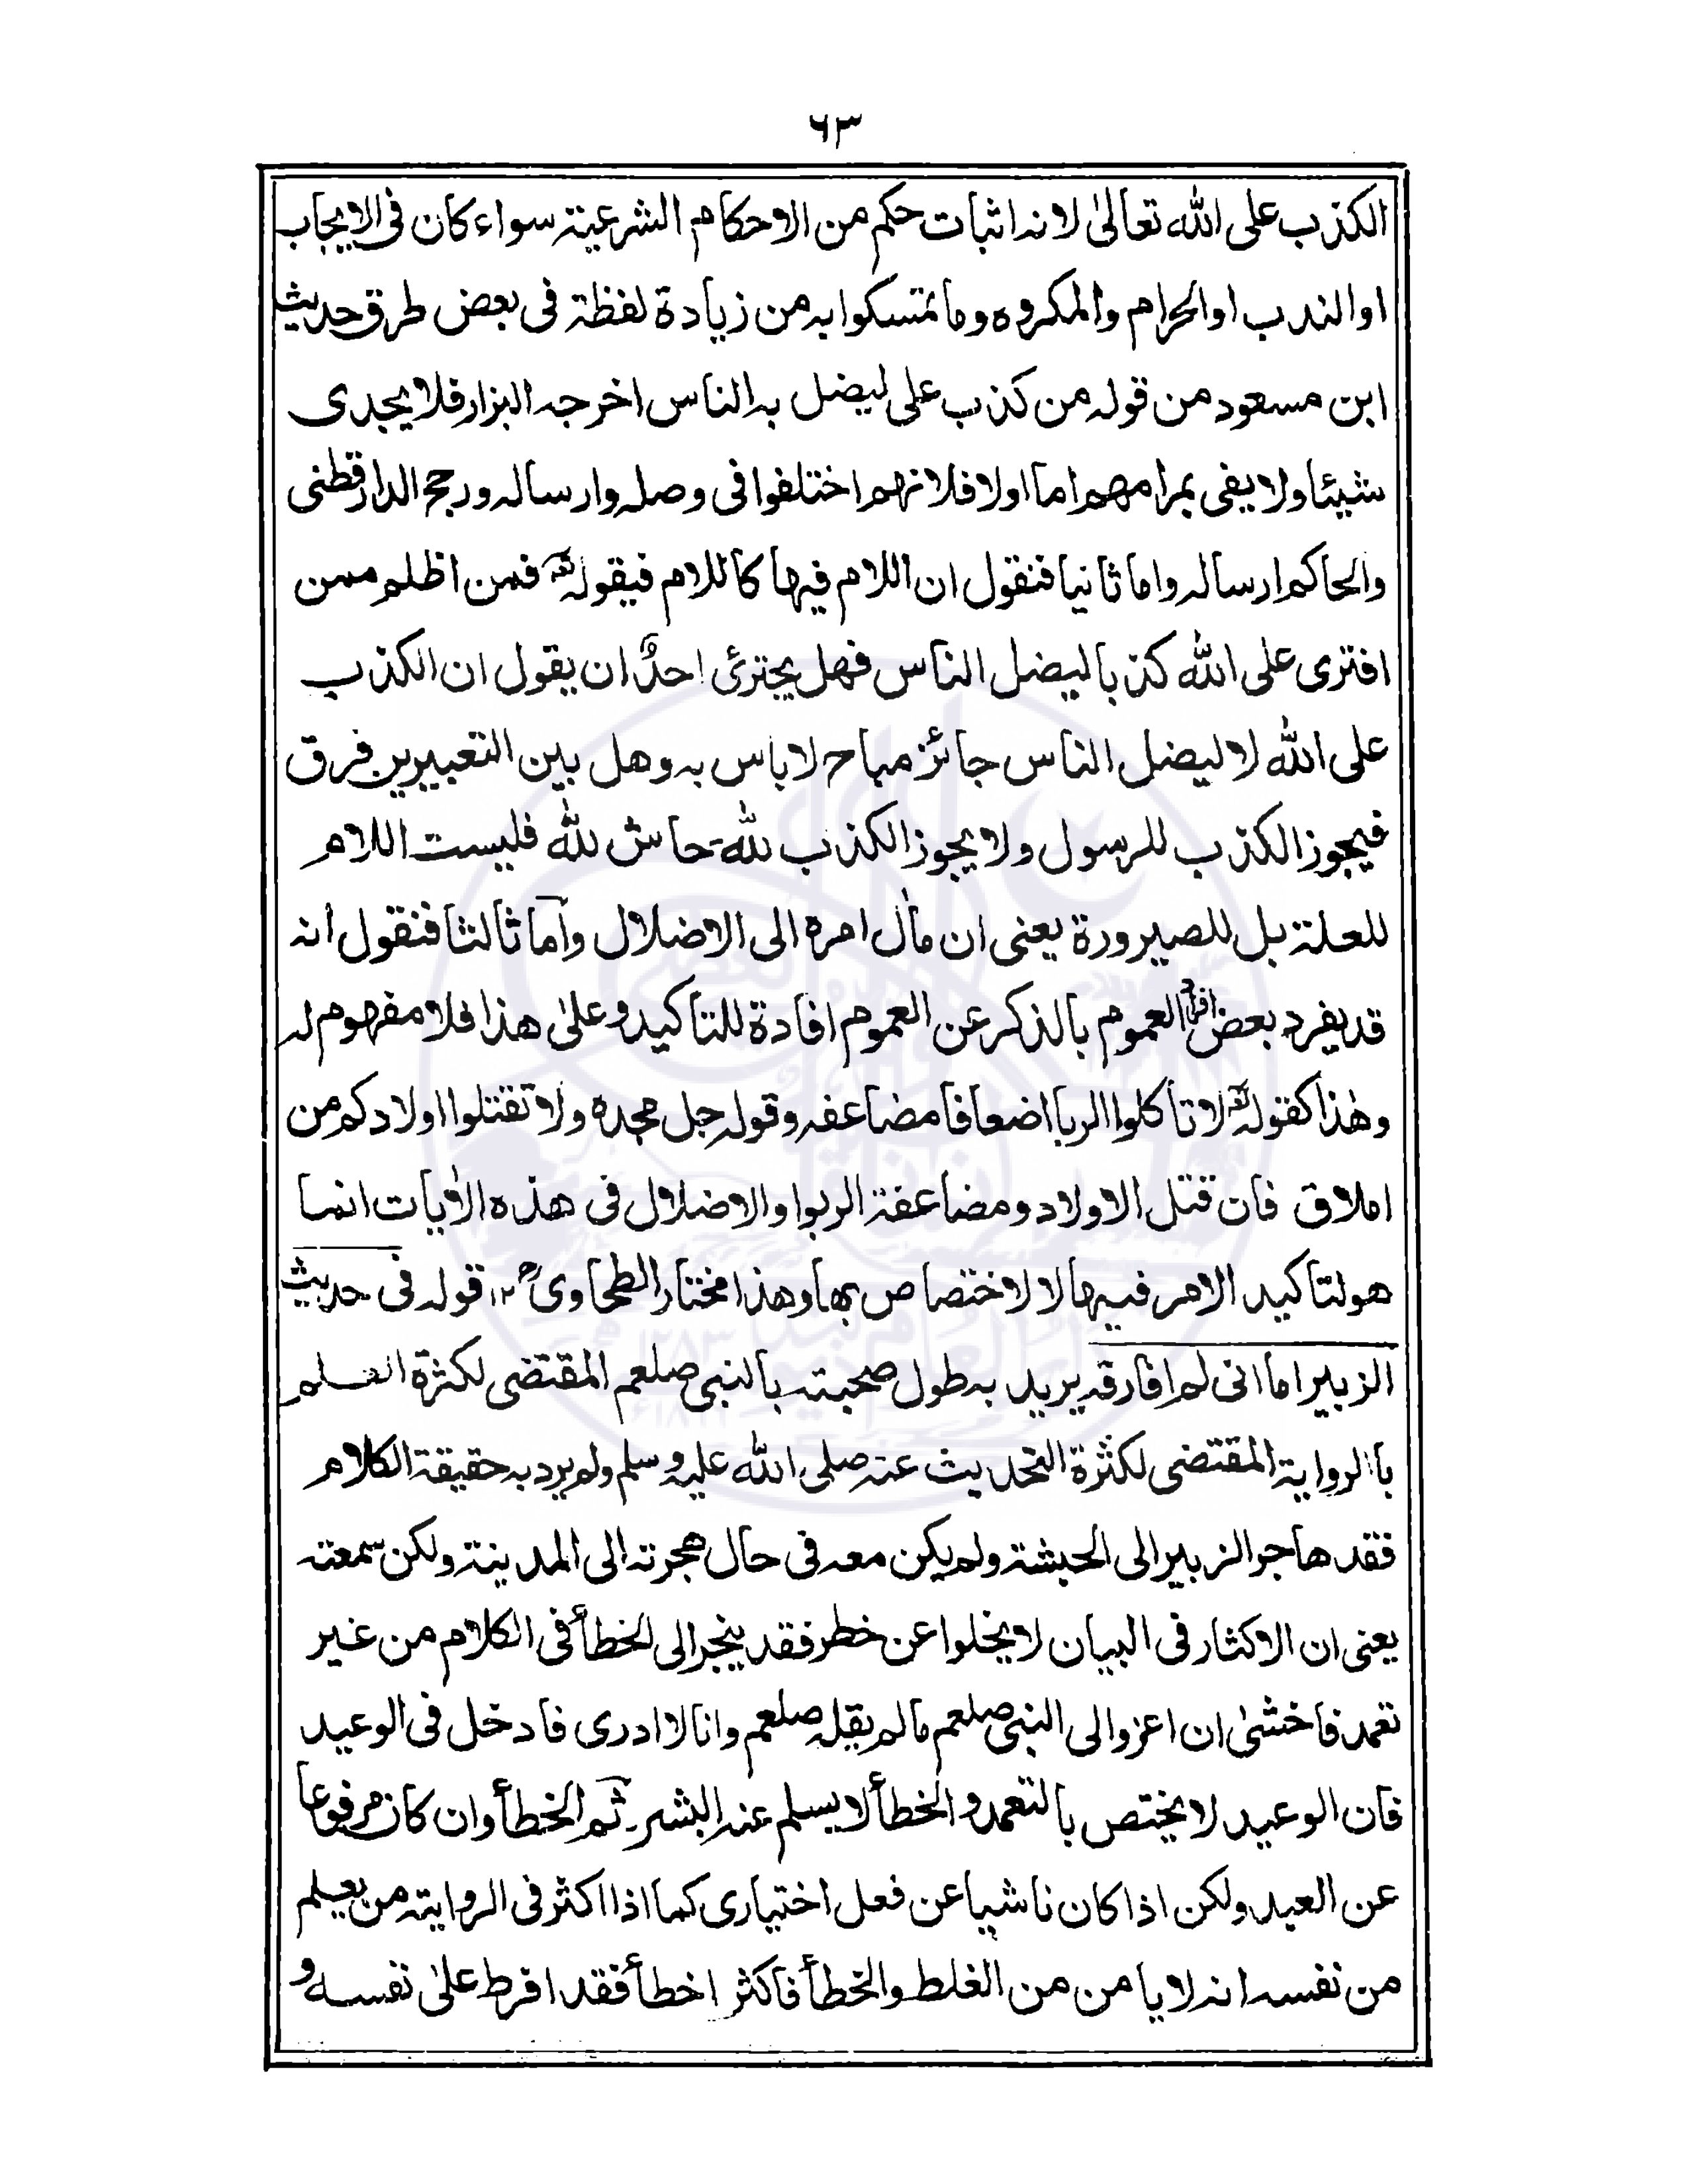 ٦٣
الكذب على الله تعالىٰ لانه اثبات حكم من الاحكام الشرعية سواء كان فى الايجاب
اوالندب اوالحرام والمكروه وما تمسكوا به من زيادة لفظة فى بعض طرق حديث
ابن مسعود من قوله من كذب على ليضل به الناس اخرجه البزار فلا يجدى
شيئا ولا يفى بمرامهم اما اولا فلانهم اختلفوا فى وصله وارساله ورجح الدارقطنى
والحاكم ارساله واما ثانيا فنقول ان اللام فيها كاللام فيقوله تعـ فمن اظلم ممن
افترى على الله كذبا ليضل الناس فهل يجترئ احدٌ ان يقول ان الكذب
على الله لا ليضل الناس جائز مباح لا باس به وهل بين التعبيرين فرق
فيجوز الكذب للرسول ولا يجوز الكذب لله حاش لله فليست اللام
للعلة بل للصيرورة يعنى ان مآل امره الى الاضلال وآما ثالثا فنقول انه
قد يفرد بعض افراد العموم بالذكر عن العموم افادة للتاكيد وعلىٰ هذا فلا مفهوم له
وهٰذا كقوله تعـ لا تأكلوا الربا اضعافا مضاعفه وقوله جل مجده ولا تقتلوا اولادكم من
املاق فان قتل الاولاد ومضاعفة الربوا والاضلال فى هذه الاٰيات انما
هولتاكيد الامر فيها لا لاختصاص بها وهذا مختار الطحاوىؒ ١٢، قوله فى حديث
الزبير اما انى لم افارقه يريد به طول صحبته بالنبى صلعم المقتضى لكثرة العلم
بالرواية المقتضى لكثرة التحديث عنه صلى الله عليه وسلم ولم يرد به حقيقة الكلام
فقد هاجر الزبير الى الحبشة ولم يكن معه فى حال هجرته الى المدينة ولكن سمعته
يعنى ان الاكثار فى البيان لا يخلوا عن خطر فقد ينجر الى الخطأ فى الكلام من غير
تعمد فاخشىٰ ان اعزوا لى النبى صلعم مالم يقله صلعم وانا لا ادرى فادخل فى الوعيد
فان الوعيد لا يختص بالتعمد والخطأ لا يسلم عنه البشر۔ ثم الخطأ وان كان مرفوعا
عن العبد ولكن اذا كان ناشيا عن فعل اختيارى كما اذا اكثر فى الرواية من يعلم
من نفسه انه لا يامن من الغلط والخطأ فاكثر اخطأ فقد افرط علىٰ نفسه و